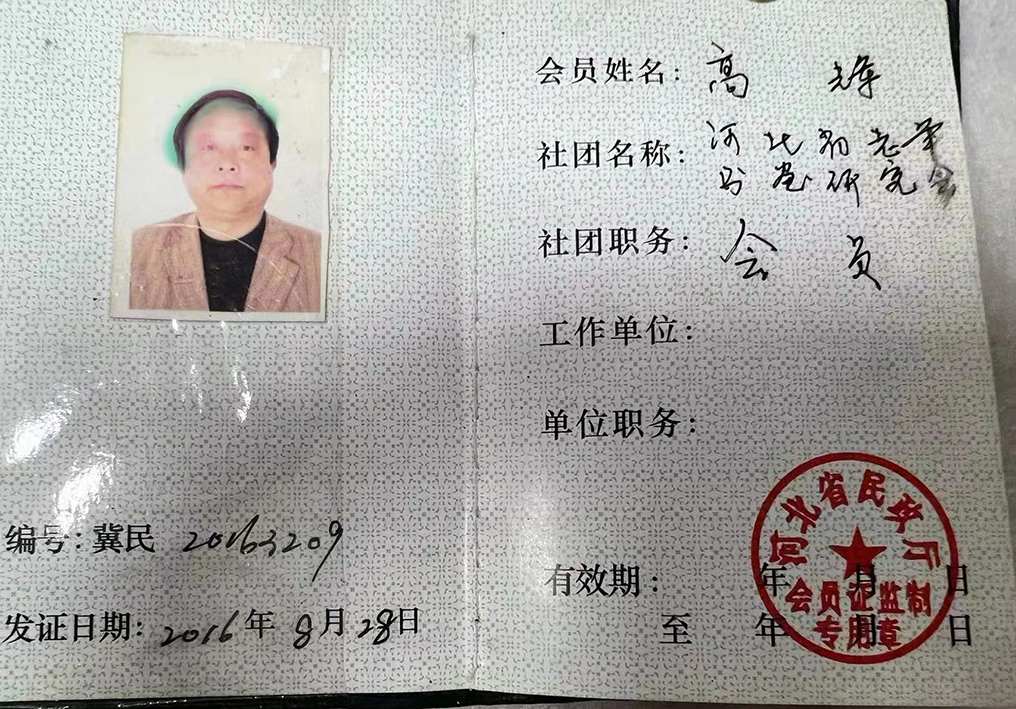 会员姓名: 高 辉
社团名称: 河北省老年
书画研究会
社团职务: 会 员
工作单位:
单位职务:
编号: 冀民 20163209
发证日期: 2016年8月28日
有效期: 年 月 日
至 年 月 日
河北省民政厅
会员证监制
专用章